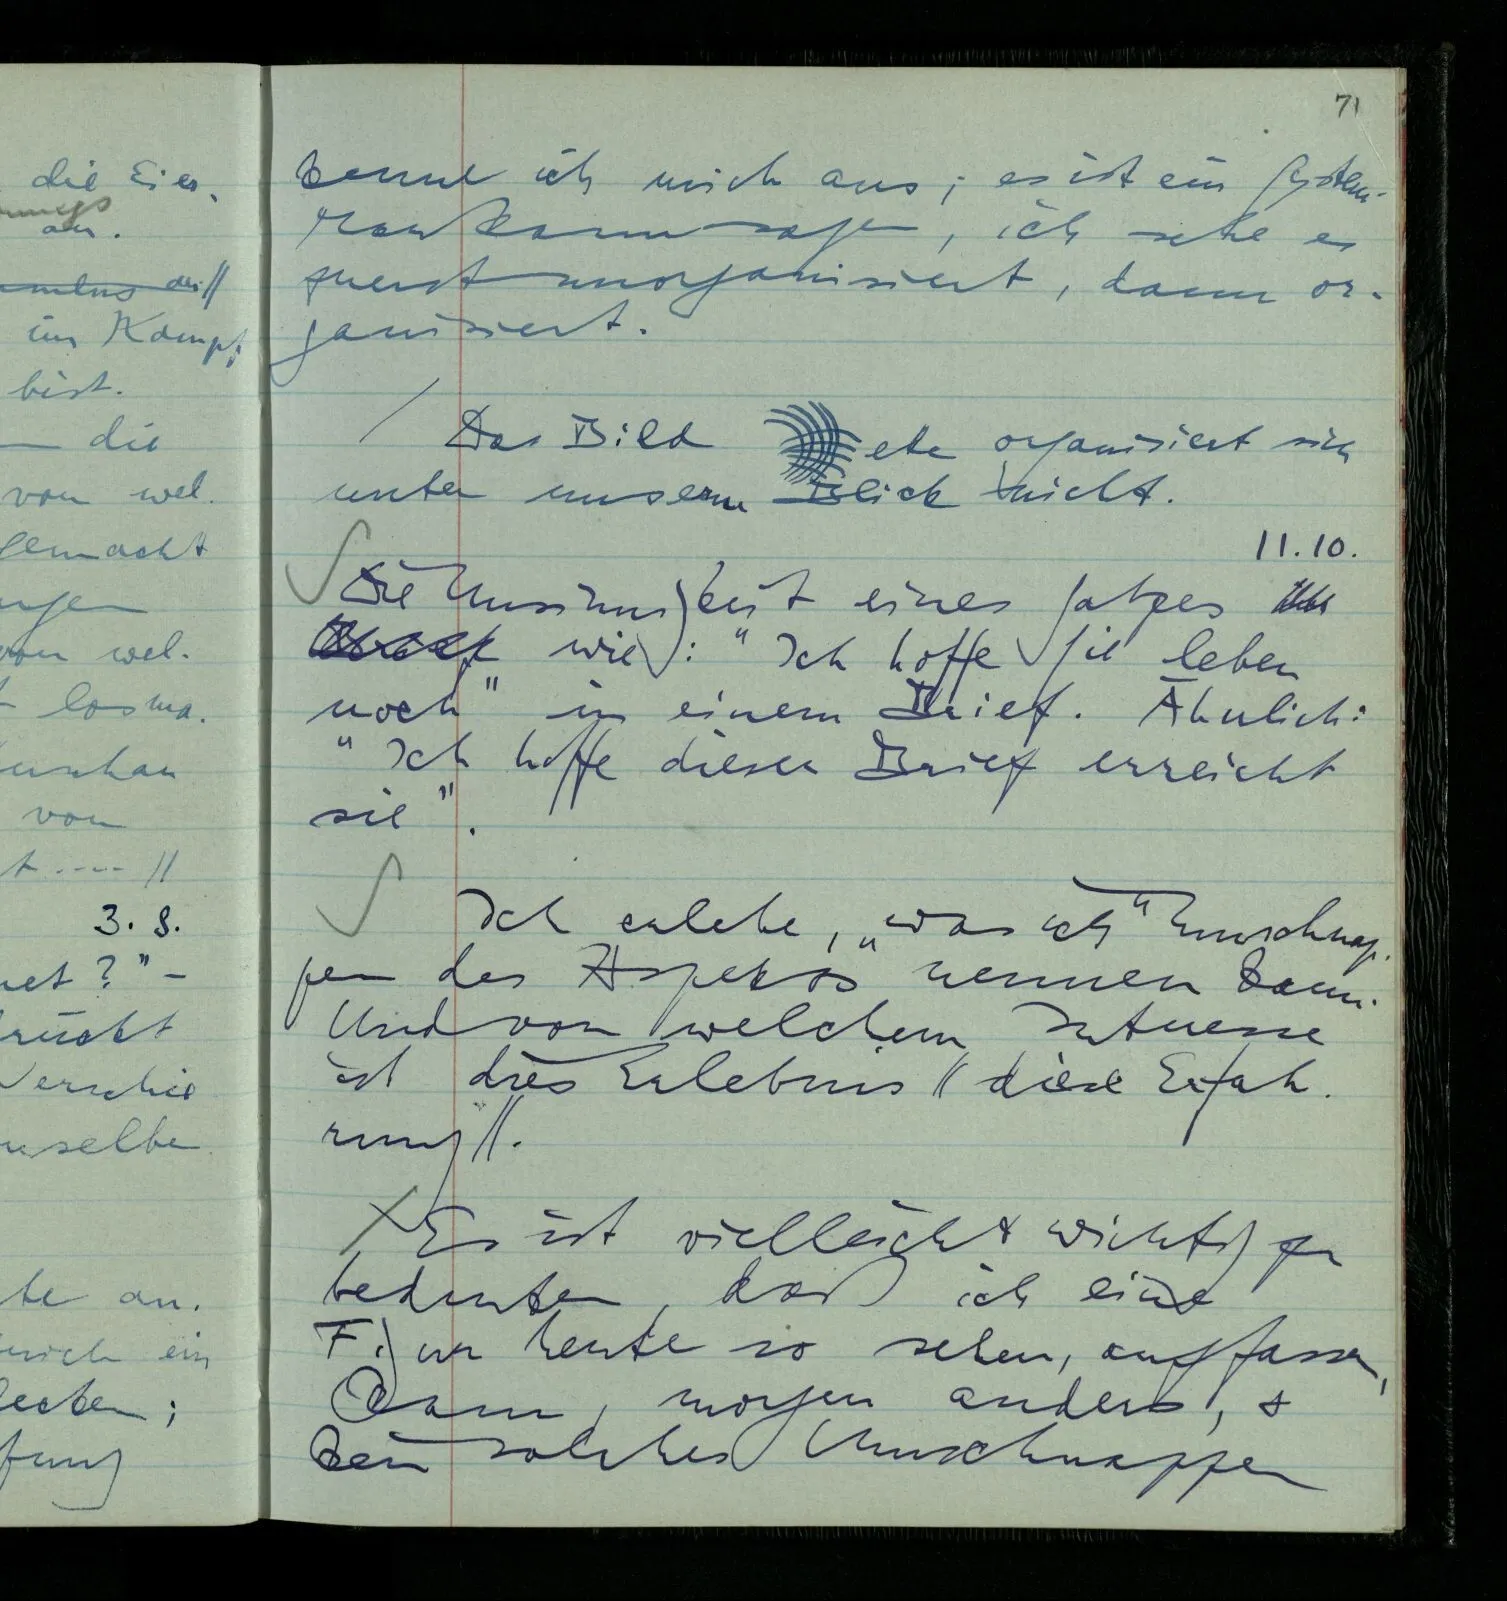 die Eier,
an.
im Kampf
bist.
die
von wel-
gemacht
von wel-
losma-
von
t ---- //
3. 8.
net?" –
drückt
Verschie
te an.
mich ein
;
71
kenne ich mich aus; es ist ein System.
Man kann sagen, ich sehe es
zuerst unorganisiert, dann or-
ganisiert.
/ Das Bild etc organisiert sich
unter unserm Blick nicht.
11.10.
Die Unsinnigkeit eines Satzes
wie: "Ich hoffe Sie leben
noch" in einem Brief. Ähnlich:
"Ich hoffe dieser Brief erreicht
sie".
Ich erlebe, „was ich" Umschnap-
pen des Aspekts nennen kann.
Und von welchem Interesse
ist dies Erlebnis // diese Erfah-
rung //.
Es ist vielleicht wichtig zu
bedenken, daß ich eine
Figur heute so sehen, auffassen,
kann, morgen anders, &
kein solches Umschnappen